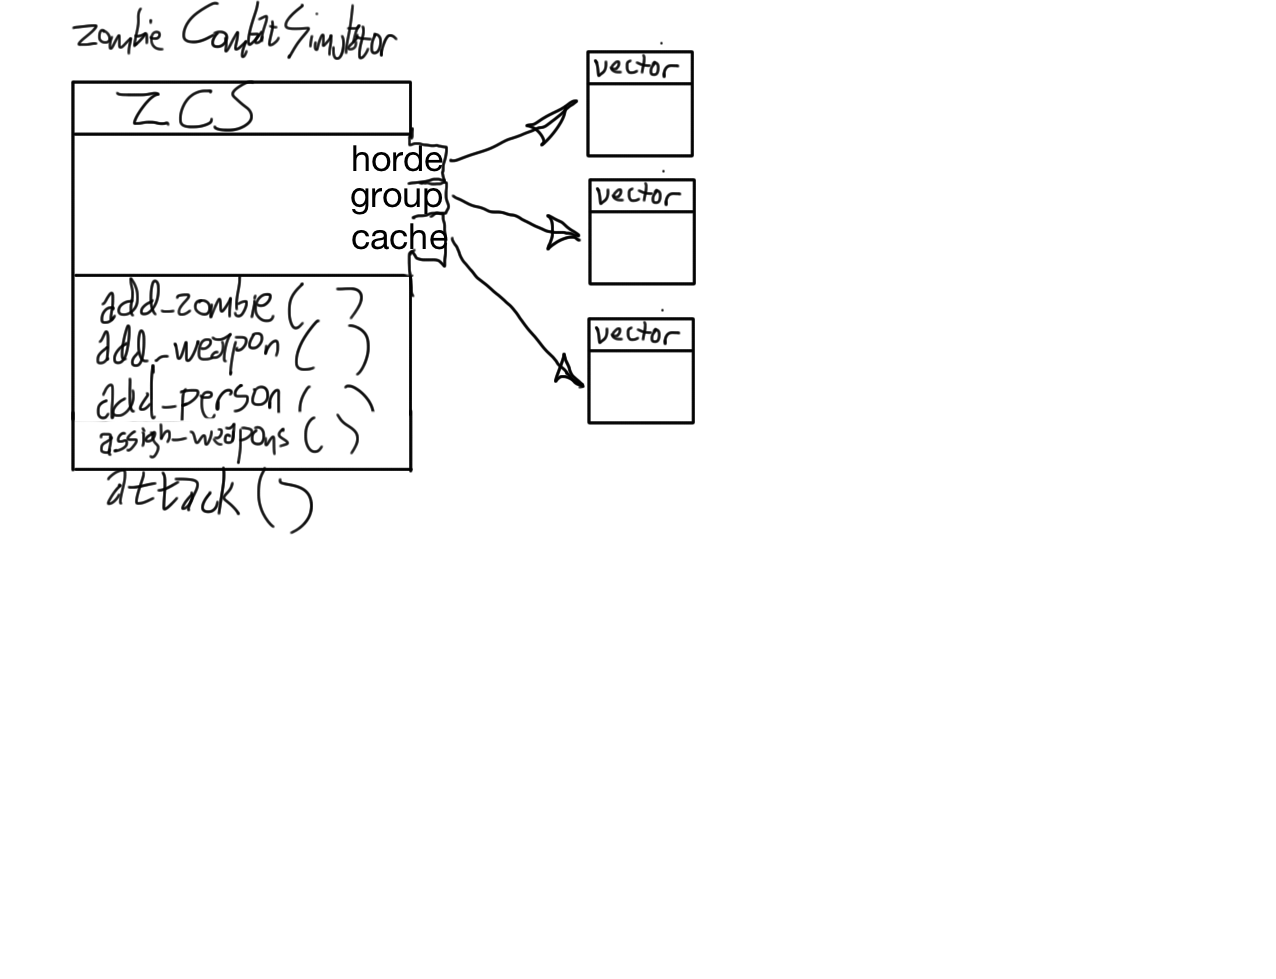 zombie Combat Simulator
ZCS
horde
group
cache
add-zombie ( )
add-weapon ( )
add-person ( )
assign-weapons ( )
attack ( )
vector
vector
vector